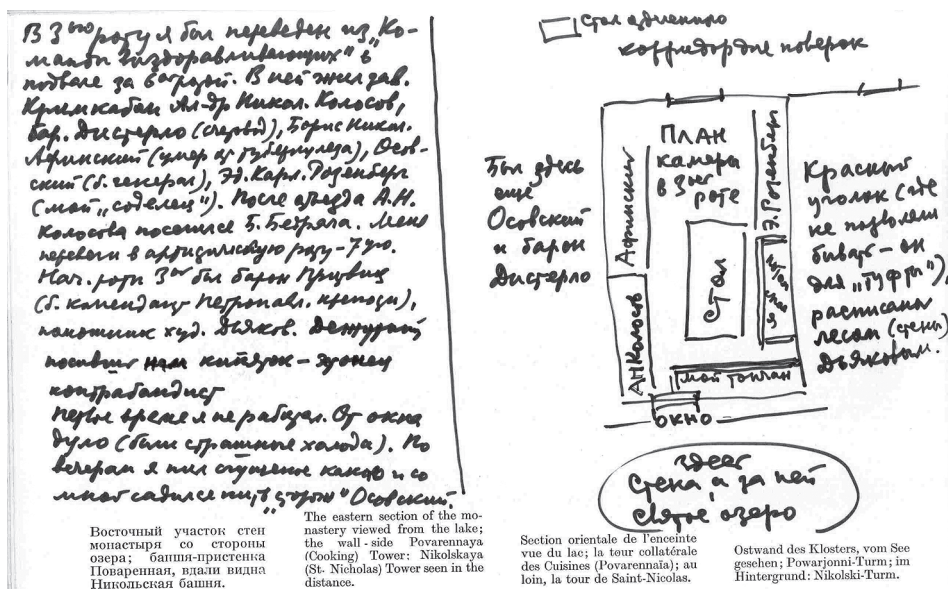 В 3ью роту я был переведен из „Ко-
манды выздоравливающих" в
подвале за 6ой ротой. В ней жил зав.
Кремкабом Ал-др Никол. Колосов,
бар. Дистерло (старый), Борис Никол.
Афинский (умер от туберкулеза), Осов-
ский (б. генерал), Эд. Карл. Розенберг
(мой „соделец"). После отъезда А.Н.
Колосова поселился Б. Бетряга. Меня
перевели в артистическую роту – 7ую.
Нач. роты 3ей был барон Притвиц
(б. комендант Петропавл. крепости),
помошник худ. Дьяков. Дежурный
носивший нам кипяток – эстонец
контрабандист
Первое время я не работал. От окна
дуло (были страшные холода). По
вечерам я пил сгущеное какао и со
мной садился пить „сгорта" Осовский.
Стол
коридорные поверок
Был здесь
еще
Осовский
и барон
Дистерло
ПЛАН
камеры
в 3ьей
роте
Афинский
Э. Розенберг
АН Колосов
Стол
мой топчан
ОКНО
Красный
уголок (где
не позволяли
бывать – он
для „туфты"),
расписаны
лесом (стены)
Дьяковым.
здесь
стена, а за ней
святое озеро
Восточный участок стен
монастыря со стороны
озера; башня-пристенка
Поваренная, вдали видна
Никольская башня.
The eastern section of the mo-
nastery viewed from the lake;
the wall - side Povarennaya
(Cooking) Tower: Nikolskaya
(St- Nicholas) Tower seen in the
distance.
Section orientale de l'enceinte
vue du lac; la teur collatérale
des Cuisines (Povarennaïa); au
loin, la tour de Saint-Nicolas.
Ostwand des Klosters, vom See
gesehen; Powarjonni-Turm; im
Hintergrund: Nikolski-Turm.